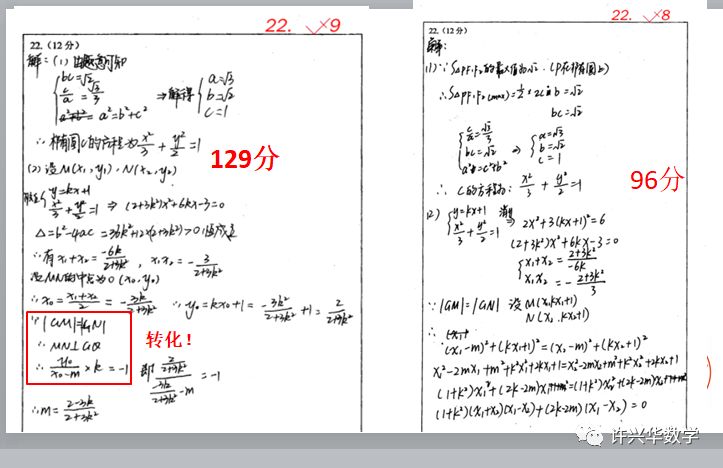 22. ✓×9
22.（12分）
解：(1) 由题意可知
{ bc=√2
c/a = √3/3
a²=b²+c²
⇒解得 { a=√3
b=√2
c=1
∴椭圆C的方程为 x²/3 + y²/2 =1
129分
(2) 设M(x₁,y₁), N(x₂,y₂)
联立{ y=kx+1
x²/3 + y²/2 =1 ⇒ (2+3k²)x²+6kx-3=0
Δ=b²-4ac = 36k²+12×(2+3k²)>0恒成立
∴有x₁+x₂= -6k/(2+3k²), x₁x₂= -3/(2+3k²)
设MN的中点为O(x₀,y₀)
∴x₀= (x₁+x₂)/2 = -3k/(2+3k²) ∴y₀=kx₀+1= -3k²/(2+3k²) +1= 2/(2+3k²)
∵|GM|=|GN|
∴MN⊥GQ
∴ y₀/(x₀-m) ×k=-1
转化！
即 (2/(2+3k²))/(-3k/(2+3k²) -m) =-1
∴m= (2-3k)/(2+3k²)
22. ✓×8
22.（12分）
解：
(1) ∵S△PF₁F₂的最大值为√2. (P在椭圆上)
∴S△PF₁F₂(max)=1/2×2c·b=√2
bc=√2
{ c/a=√3/3
bc=√2
a²=c²+b²
⇒ { a=√3
b=√2
c=1
∴C的方程为: x²/3 + y²/2 =1
96分
(2) { y=kx+1
x²/3 + y²/2 =1
消y ⇒ 2x²+3(kx+1)²=6
(2+3k²)x²+6kx-3=0
{ x₁+x₂= (2+3k²)/-6k
x₁x₂= -(2+3k²)/3
∵|GM|=|GN| 设M(x₁,kx₁+1)
N(x₂,kx₂+1)
∴
(x₁-m)²+(kx₁+1)²=(x₂-m)²+(kx₂+1)²
x₁²-2mx₁+m²+k²x₁²+2kx₁+1=x₂²-2mx₂+m²+k²x₂²+2kx₂+1
(1+k²)x₁²+(2k-2m)x₁=(1+k²)x₂²+(2k-2m)x₂
(1+k²)(x₁+x₂)(x₁-x₂)+(2k-2m)(x₁-x₂)=0
许兴华数学